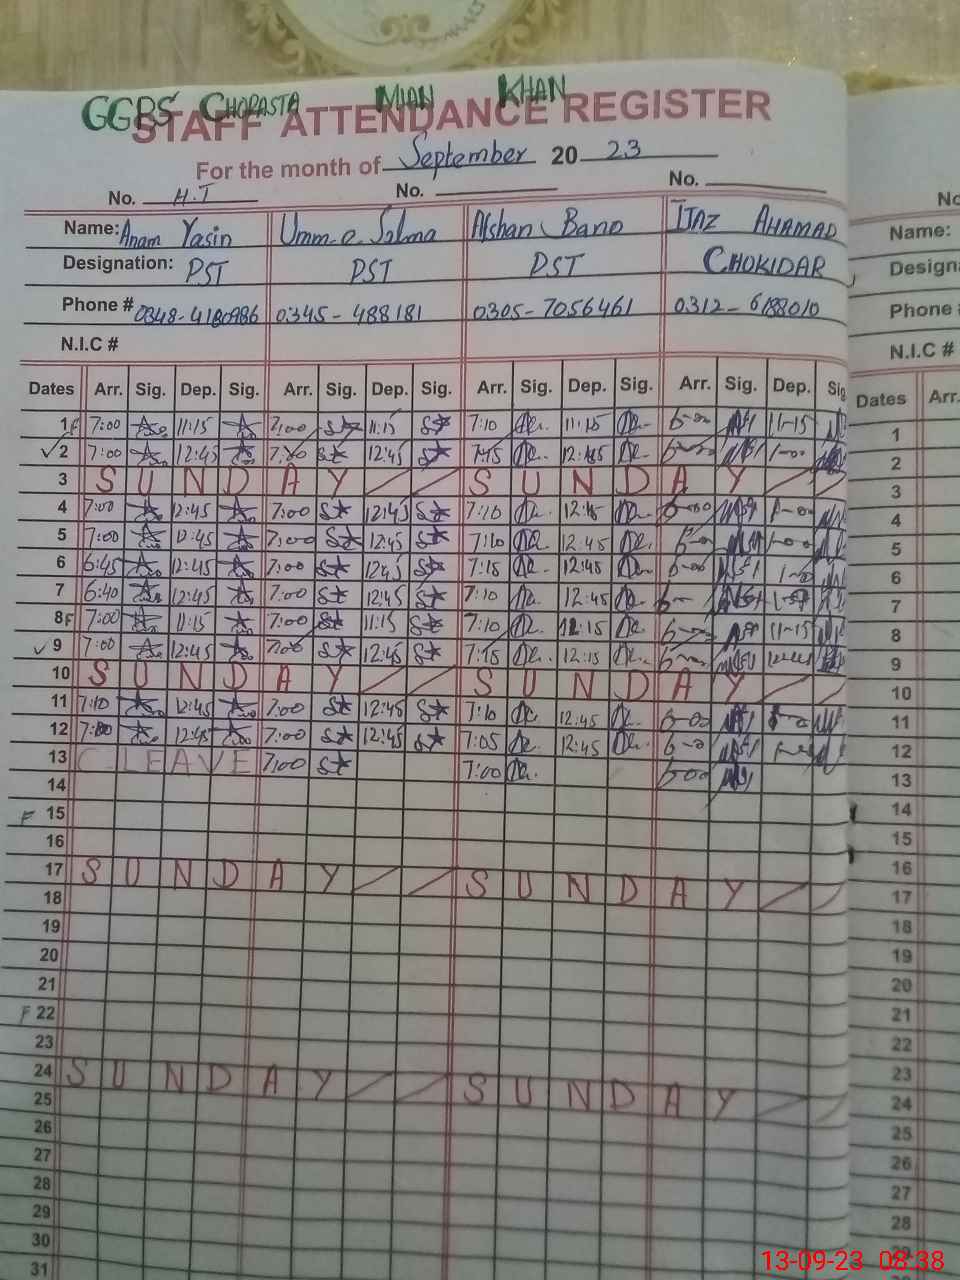 GGPS CHORASTA MIAN KHAN
STAFF ATTENDANCE REGISTER
For the month of September 20 23
No. H.T No. No.
Name: Anam Yasin Umm-e-Salma Afshan Bano IJAZ AHAMAD
Designation: PST PST PST CHOKIDAR
Phone # 0345-488181 0305-7056461 0312-6188010
N.I.C #
Dates Arr. Sig. Dep. Sig. Arr. Sig. Dep. Sig. Arr. Sig. Dep. Sig. Arr. Sig. Dep. Sig
1F 7:00 11:15 7:00 11:15 7:10 11:15 6-00 11-15
2 7:00 12:45 7:00 12:45 7:15 12:45 6-00 1-00
3 S U N D A Y S U N D A Y
4 7:00 12:45 7:00 12:45 7:10 12:45 6-00 1-00
5 7:00 12:45 7:00 12:45 7:10 12:45 6-00 1-00
6 6:45 12:45 7:00 12:45 7:15 12:45 6-00 1-00
7 6:40 12:45 7:00 12:45 7:10 12:45
8F 7:00 11:15 7:00 11:15 7:10 11:15 6-00 11-15
9 7:00 12:45 7:00 12:45 7:15 12:15 6-00
10 S U N D A Y S U N D A Y
11 7:10 12:45 7:00 12:45 7:10 12:45 6-00
12 7:00 12:45 7:00 12:45 7:05 12:45 6-0
13 C.LEAVE 7:00 7:00 6-00
14
F 15
16
17 S U N D A Y S U N D A Y
18
19
20
21
F 22
23
24 S U N D A Y S U N D A Y
25
26
27
28
29
30
31
No
Name:
Design
Phone
N.I.C #
Dates Arr.
1
2
3
4
5
6
7
8
9
10
11
12
13
14
15
16
17
18
19
20
21
22
23
24
25
26
27
28
13-09-23 08:38